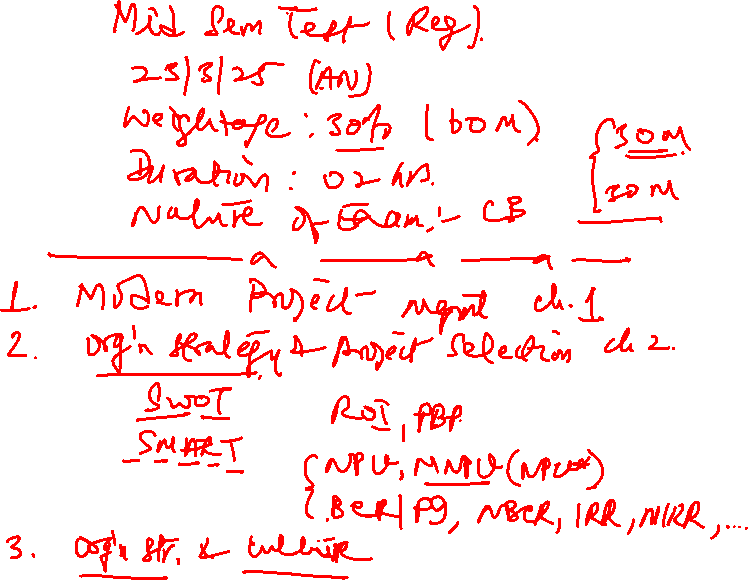 Mid Sem Test (Reg).
23/3/25 (AN)
Weightage : 30% (60M)
30M
Duration : 02 hrs.
30M
Nature of Exam :- CB
1. Modern Project mgmt ch. 1
2. Org'n strategy & Project Selection ch 2.
SWOT ROI, PBP
SMART
NPV, MNPV (NPV*)
BCR/PI, NBCR, IRR, MIRR, ...
3. Org'n str. & culture